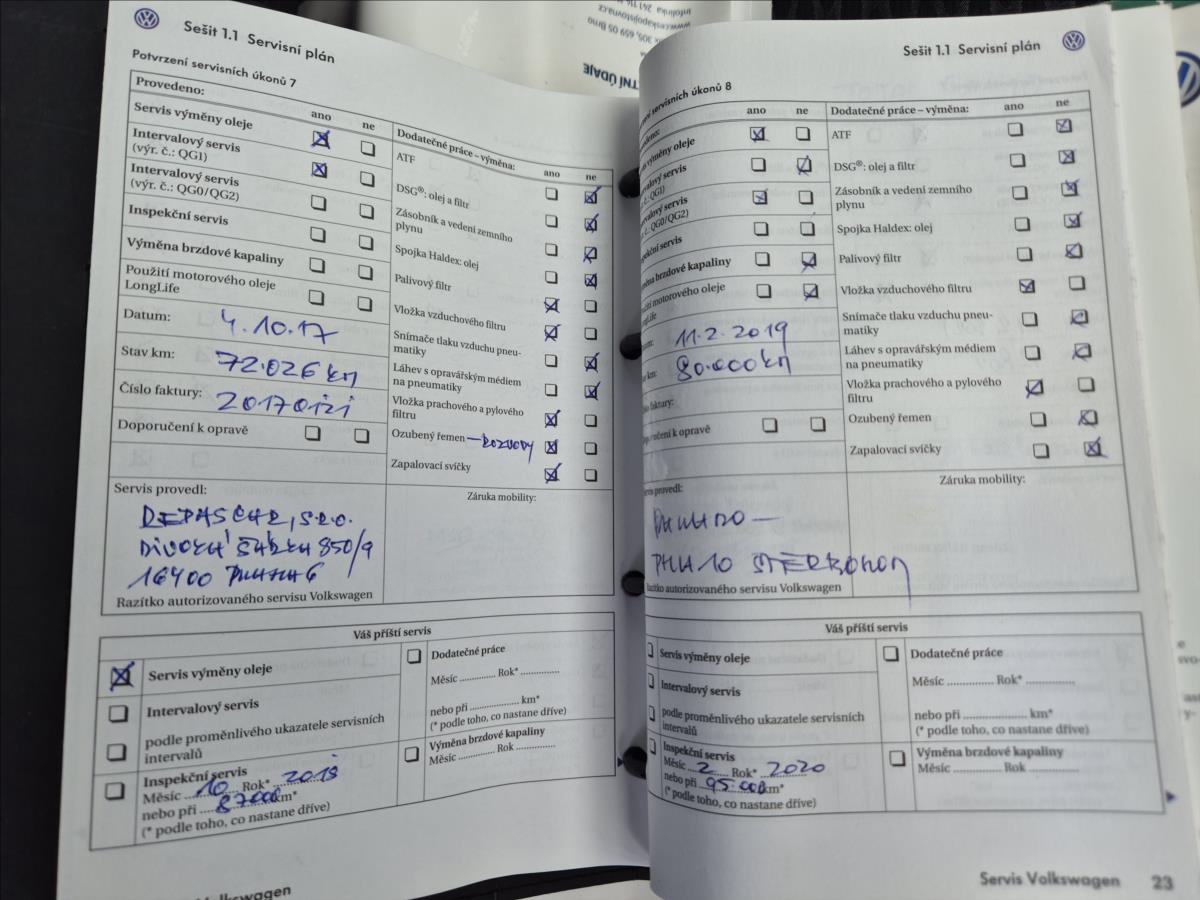 241 114
infolinka
www.ceskapojistovna.cz
305, 659 05 Brno
TNÍ ÚDAJE
Sešit 1.1 Servisní plán
Potvrzení servisních úkonů 7
Provedeno:
ano ne
Servis výměny oleje
Intervalový servis
(výr. č.: QG1)
Intervalový servis
(výr. č.: QG0/QG2)
Inspekční servis
Výměna brzdové kapaliny
Použití motorového oleje
LongLife
Datum: 4.10.17
Stav km: 72.026 km
Číslo faktury:
Doporučení k opravě
Dodatečné práce – výměna:
ano ne
ATF
DSG®: olej a filtr
Zásobník a vedení zemního
plynu
Spojka Haldex: olej
Palivový filtr
Vložka vzduchového filtru
Snímače tlaku vzduchu pneu-
matiky
Láhev s opravářským médiem
na pneumatiky
Vložka prachového a pylového
filtru
Ozubený řemen – ROZVODY
Zapalovací svíčky
Servis provedl:
Záruka mobility:
DIVOKÁ ŠÁRKA 850/9
16400 PRAHA 6
Razítko autorizovaného servisu Volkswagen
Váš příští servis
Servis výměny oleje
Intervalový servis
podle proměnlivého ukazatele servisních
intervalů
Inspekční servis
Měsíc 10 Rok* 2018
nebo při 87000 km*
(* podle toho, co nastane dříve)
Dodatečné práce
Měsíc .............. Rok* ..............
nebo při .............. km*
(* podle toho, co nastane dříve)
Výměna brzdové kapaliny
Měsíc .............. Rok ..............
Volkswagen
Sešit 1.1 Servisní plán
servisních úkonů 8
ano ne
výměny oleje
servis
č.: QG1)
servis
č.: QG0/QG2)
servis
brzdové kapaliny
motorového oleje
11.2.2019
km: 80.000 km
faktury:
k opravě
Dodatečné práce – výměna:
ano ne
ATF
DSG®: olej a filtr
Zásobník a vedení zemního
plynu
Spojka Haldex: olej
Palivový filtr
Vložka vzduchového filtru
Snímače tlaku vzduchu pneu-
matiky
Láhev s opravářským médiem
na pneumatiky
Vložka prachového a pylového
filtru
Ozubený řemen
Zapalovací svíčky
provedl:
Záruka mobility:
Razítko autorizovaného servisu Volkswagen
Váš příští servis
Servis výměny oleje
Intervalový servis
podle proměnlivého ukazatele servisních
intervalů
Inspekční servis
Měsíc 2 Rok* 2020
nebo při 95.000 km*
(* podle toho, co nastane dříve)
Dodatečné práce
Měsíc .............. Rok* ..............
nebo při .............. km*
(* podle toho, co nastane dříve)
Výměna brzdové kapaliny
Měsíc .............. Rok ..............
Servis Volkswagen 23